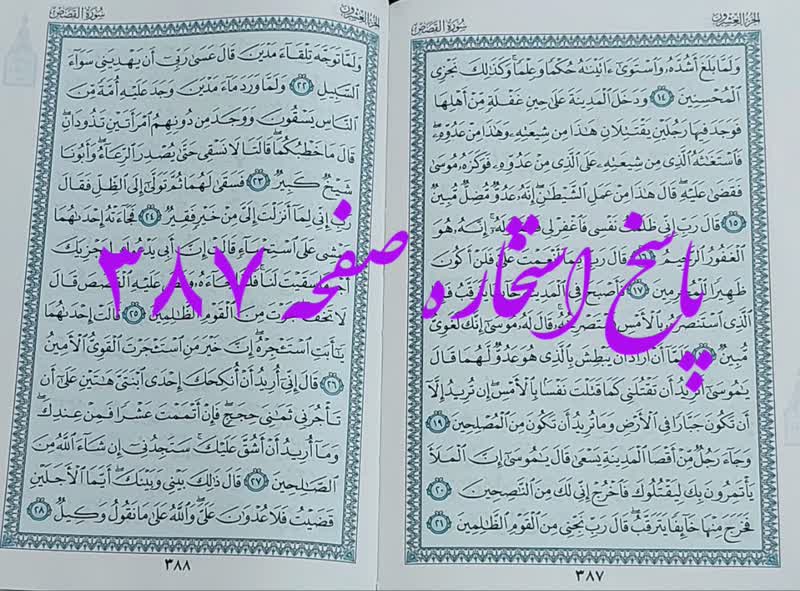 الجزء العشرون سورة القصص
وَلَمَّا بَلَغَ أَشُدَّهُ وَاسْتَوَىٰ ءَاتَيْنَٰهُ حُكْمًا وَعِلْمًا ۚ وَكَذَٰلِكَ نَجْزِى
الْمُحْسِنِينَ ﴿١٤﴾ وَدَخَلَ الْمَدِينَةَ عَلَىٰ حِينِ غَفْلَةٍ مِنْ أَهْلِهَا
فَوَجَدَ فِيهَا رَجُلَيْنِ يَقْتَتِلَانِ هَٰذَا مِنْ شِيعَتِهِ وَهَٰذَا مِنْ عَدُوِّهِ ۖ
فَاسْتَغَاثَهُ الَّذِى مِنْ شِيعَتِهِ عَلَى الَّذِى مِنْ عَدُوِّهِ فَوَكَزَهُ مُوسَىٰ
فَقَضَىٰ عَلَيْهِ ۖ قَالَ هَٰذَا مِنْ عَمَلِ الشَّيْطَانِ ۖ إِنَّهُ عَدُوٌّ مُضِلٌّ مُبِينٌ
﴿١٥﴾ قَالَ رَبِّ إِنِّى ظَلَمْتُ نَفْسِى فَاغْفِرْ لِى فَغَفَرَ لَهُ ۚ إِنَّهُ هُوَ
الْغَفُورُ الرَّحِيمُ ﴿١٦﴾ قَالَ رَبِّ بِمَا أَنْعَمْتَ عَلَىَّ فَلَنْ أَكُونَ
ظَهِيرًا لِلْمُجْرِمِينَ ﴿١٧﴾ فَأَصْبَحَ فِى الْمَدِينَةِ خَائِفًا يَتَرَقَّبُ فَإِذَا
الَّذِى اسْتَنْصَرَهُ بِالْأَمْسِ يَسْتَصْرِخُهُ ۚ قَالَ لَهُ مُوسَىٰ إِنَّكَ لَغَوِىٌّ
مُبِينٌ ﴿١٨﴾ فَلَمَّا أَنْ أَرَادَ أَنْ يَبْطِشَ بِالَّذِى هُوَ عَدُوٌّ لَهُمَا قَالَ
يَا مُوسَىٰ أَتُرِيدُ أَنْ تَقْتُلَنِى كَمَا قَتَلْتَ نَفْسًا بِالْأَمْسِ ۖ إِنْ تُرِيدُ إِلَّا
أَنْ تَكُونَ جَبَّارًا فِى الْأَرْضِ وَمَا تُرِيدُ أَنْ تَكُونَ مِنَ الْمُصْلِحِينَ ﴿١٩﴾
وَجَاءَ رَجُلٌ مِنْ أَقْصَا الْمَدِينَةِ يَسْعَىٰ قَالَ يَا مُوسَىٰ إِنَّ الْمَلَأَ
يَأْتَمِرُونَ بِكَ لِيَقْتُلُوكَ فَاخْرُجْ إِنِّى لَكَ مِنَ النَّاصِحِينَ ﴿٢٠﴾
فَخَرَجَ مِنْهَا خَائِفًا يَتَرَقَّبُ ۖ قَالَ رَبِّ نَجِّنِى مِنَ الْقَوْمِ الظَّالِمِينَ ﴿٢١﴾
٣٨٧
الجزء العشرون سورة القصص
وَلَمَّا تَوَجَّهَ تِلْقَاءَ مَدْيَنَ قَالَ عَسَىٰ رَبِّى أَنْ يَهْدِيَنِى سَوَاءَ
السَّبِيلِ ﴿٢٢﴾ وَلَمَّا وَرَدَ مَاءَ مَدْيَنَ وَجَدَ عَلَيْهِ أُمَّةً مِنَ
النَّاسِ يَسْقُونَ وَوَجَدَ مِنْ دُونِهِمُ امْرَأَتَيْنِ تَذُودَانِ ۖ
قَالَ مَا خَطْبُكُمَا ۖ قَالَتَا لَا نَسْقِى حَتَّىٰ يُصْدِرَ الرِّعَاءُ ۖ وَأَبُونَا
شَيْخٌ كَبِيرٌ ﴿٢٣﴾ فَسَقَىٰ لَهُمَا ثُمَّ تَوَلَّىٰ إِلَى الظِّلِّ فَقَالَ
رَبِّ إِنِّى لِمَا أَنْزَلْتَ إِلَىَّ مِنْ خَيْرٍ فَقِيرٌ ﴿٢٤﴾ فَجَاءَتْهُ إِحْدَاهُمَا
تَمْشِى عَلَى اسْتِحْيَاءٍ قَالَتْ إِنَّ أَبِى يَدْعُوكَ لِيَجْزِيَكَ
أَجْرَ مَا سَقَيْتَ لَنَا ۚ فَلَمَّا جَاءَهُ وَقَصَّ عَلَيْهِ الْقَصَصَ قَالَ
لَا تَخَفْ ۖ نَجَوْتَ مِنَ الْقَوْمِ الظَّالِمِينَ ﴿٢٥﴾ قَالَتْ إِحْدَاهُمَا
يَا أَبَتِ اسْتَأْجِرْهُ ۖ إِنَّ خَيْرَ مَنِ اسْتَأْجَرْتَ الْقَوِىُّ الْأَمِينُ
﴿٢٦﴾ قَالَ إِنِّى أُرِيدُ أَنْ أُنْكِحَكَ إِحْدَى ابْنَتَىَّ هَاتَيْنِ عَلَىٰ أَنْ
تَأْجُرَنِى ثَمَانِىَ حِجَجٍ ۖ فَإِنْ أَتْمَمْتَ عَشْرًا فَمِنْ عِنْدِكَ ۖ
وَمَا أُرِيدُ أَنْ أَشُقَّ عَلَيْكَ ۚ سَتَجِدُنِى إِنْ شَاءَ اللَّهُ مِنَ
الصَّالِحِينَ ﴿٢٧﴾ قَالَ ذَٰلِكَ بَيْنِى وَبَيْنَكَ ۖ أَيَّمَا الْأَجَلَيْنِ
قَضَيْتُ فَلَا عُدْوَانَ عَلَىَّ ۖ وَاللَّهُ عَلَىٰ مَا نَقُولُ وَكِيلٌ ﴿٢٨﴾
٣٨٨
پاسخ استخاره صفحه ۳۸۷